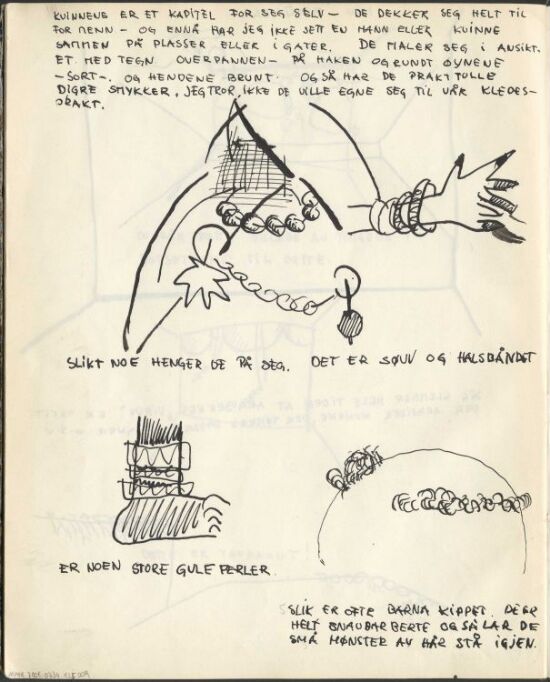 KVINNENE ER ET KAPITEL FOR SEG SELV - DE DEKKER SEG HELT TIL
FOR MENN - OG ENNÅ HAR JEG IKKE SETT EN MANN ELLER KVINNE
SAMMEN PÅ PLASSER ELLER I GATER. DE MALER SEG I ANSIKT.
ET MED TEGN OVERPANNEN - PÅ HAKEN OG RUNDT ØYNENE
- SORT -. OG HENDENE BRUNT. OGSÅ HAR DE PRAKTFULLE
DIGRE SMYKKER, JEG TROR, IKKE DE VILLE EGNE SEG TIL VÅR KLEDES-
DRAKT.
SLIKT NOE HENGER DE PÅ SEG. DET ER SØLV OG HALSBÅNDET
ER NOEN STORE GULE PERLER.
SLIK ER OFTE BARNA KLIPPET. DE ER
HELT SNAUBARBERTE OG SÅ LAR DE
SMÅ MØNSTER AV HÅR STÅ IGJEN.